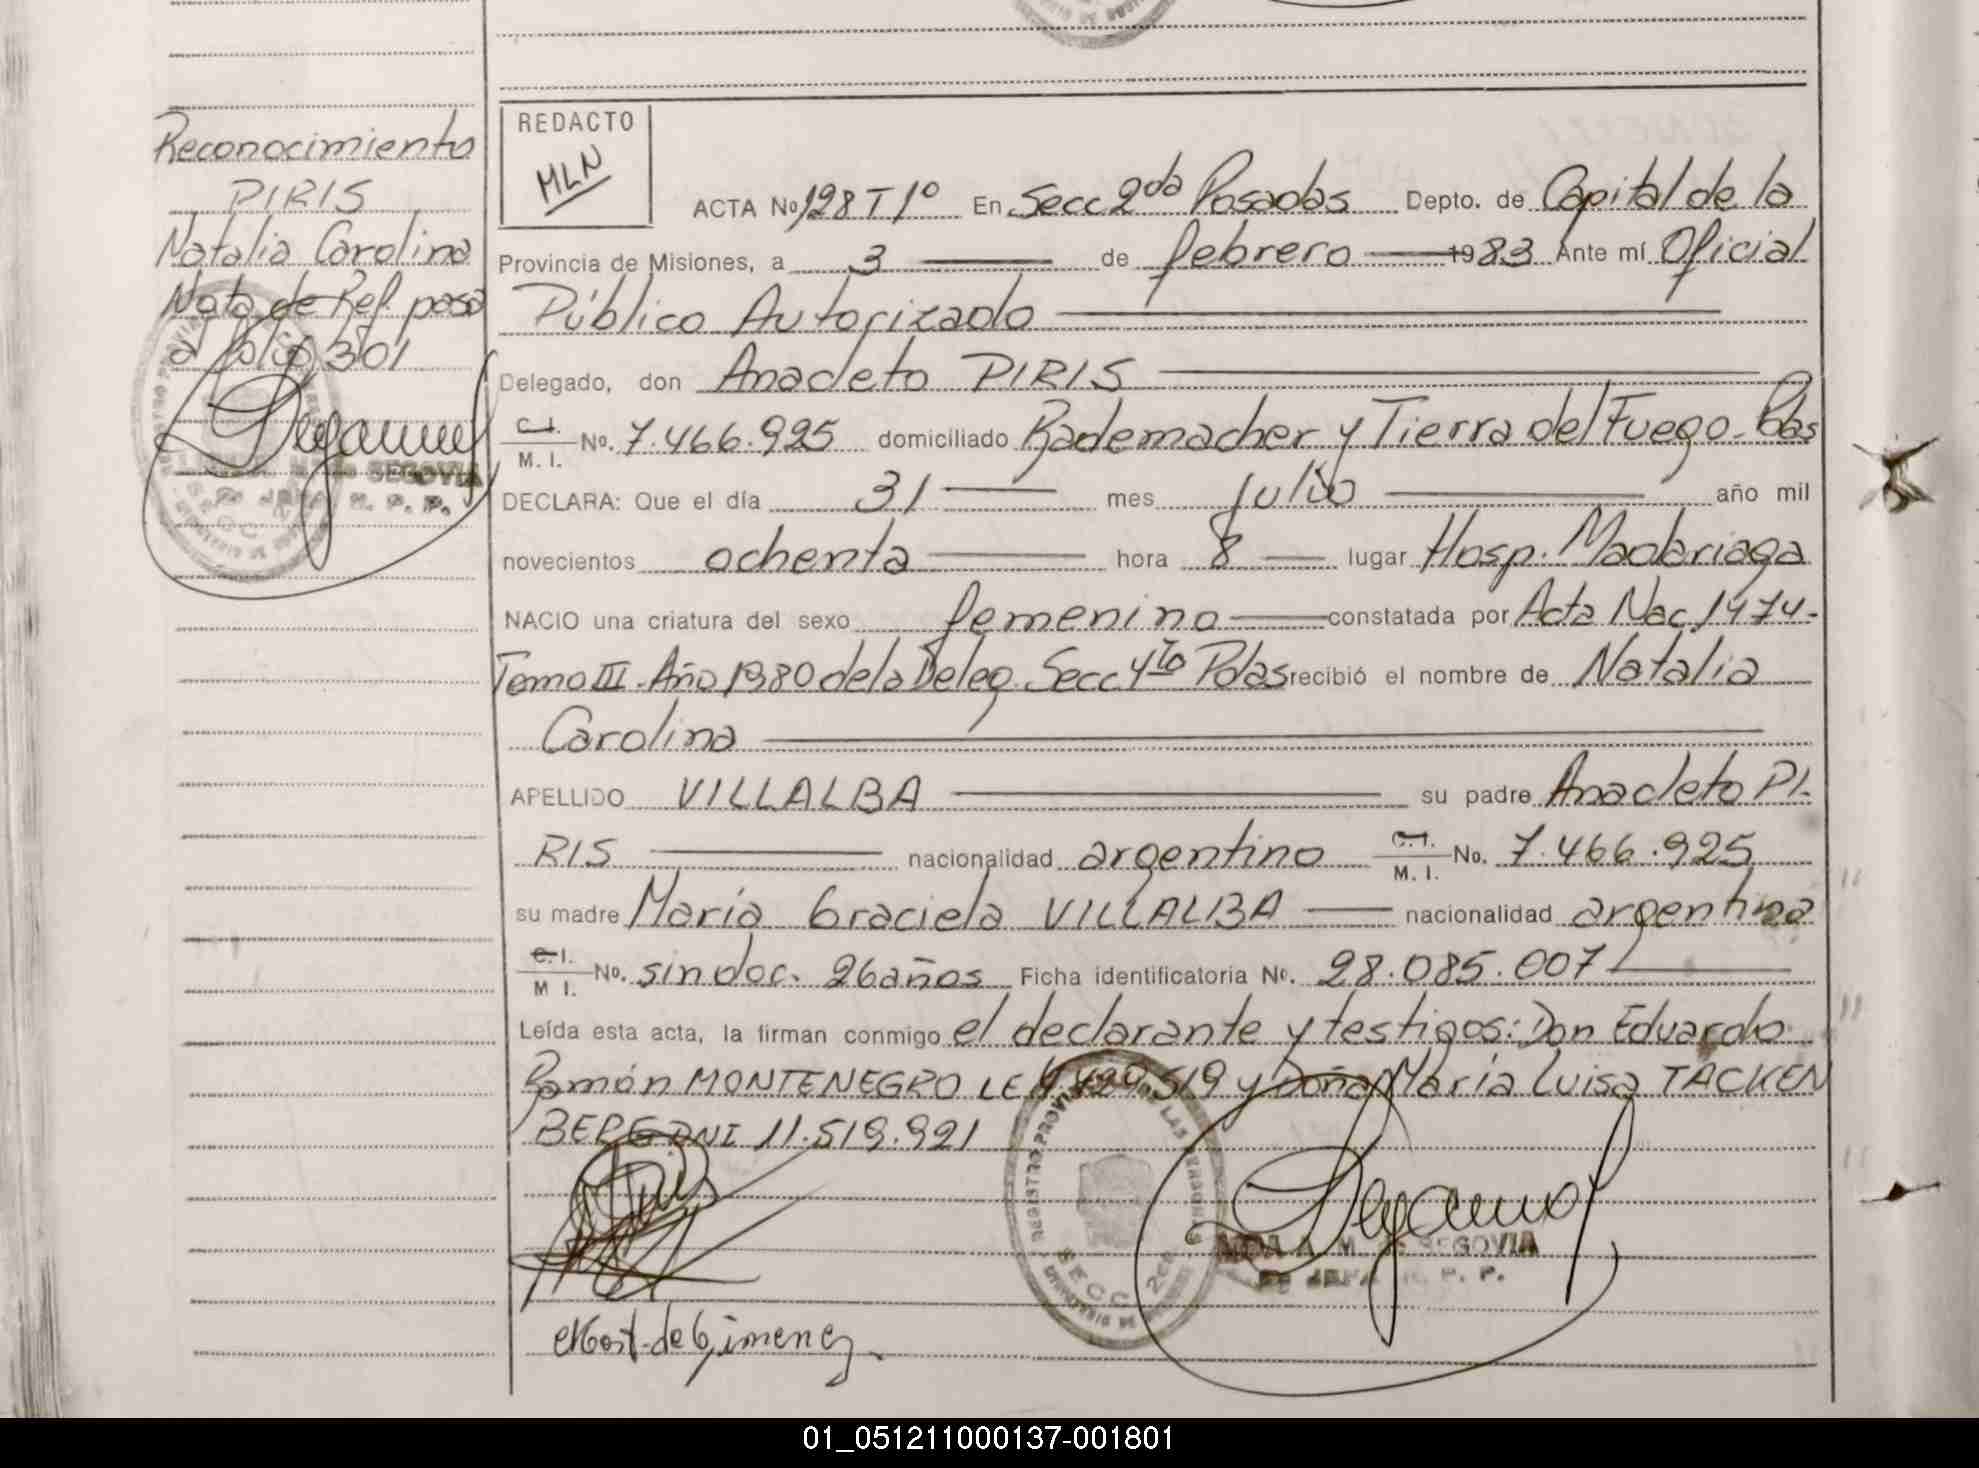 Reconocimiento
PIRIS
Natalia Carolina
Nota de Ref. pasa
a folio 301
SEGOVIA
REDACTO
MLN
ACTA No 128 T 1º En Secc 2da Posadas Depto. de Capital de la
Provincia de Misiones, a 3 de febrero 1983 Ante mí Oficial
Público Autorizado
Delegado, don Anacleto PIRIS
C.I. M. I. No. 7.466.925 domiciliado Rademacher y Tierra del Fuego. Pdas
DECLARA: Que el día 31 mes julio año mil
novecientos ochenta hora 8 lugar Hosp. Madariaga
NACIO una criatura del sexo femenino constatada por Acta Nac. 1474-
Tomo III. Año 1980 de la Deleg. Secc 4ta Pdas recibió el nombre de Natalia
Carolina
APELLIDO VILLALBA su padre Anacleto PI-
RIS nacionalidad argentino C.I. M. I. No. 7.466.925
su madre María Graciela VILLALBA nacionalidad argentina
C.I. M I. No. sin doc. 26 años Ficha identificatoria No. 28.085.007
Leída esta acta, la firman conmigo el declarante y testigos: Don Eduardo
Ramón MONTENEGRO LE y Doña María Luisa TACKEN
BERG DNI 11.519.921
REGISTRO PROVINCIAL DE LAS PERSONAS
SECC 2da
SEGOVIA
DE JEFA R. P. P.
de Gimenez
01_051211000137-001801